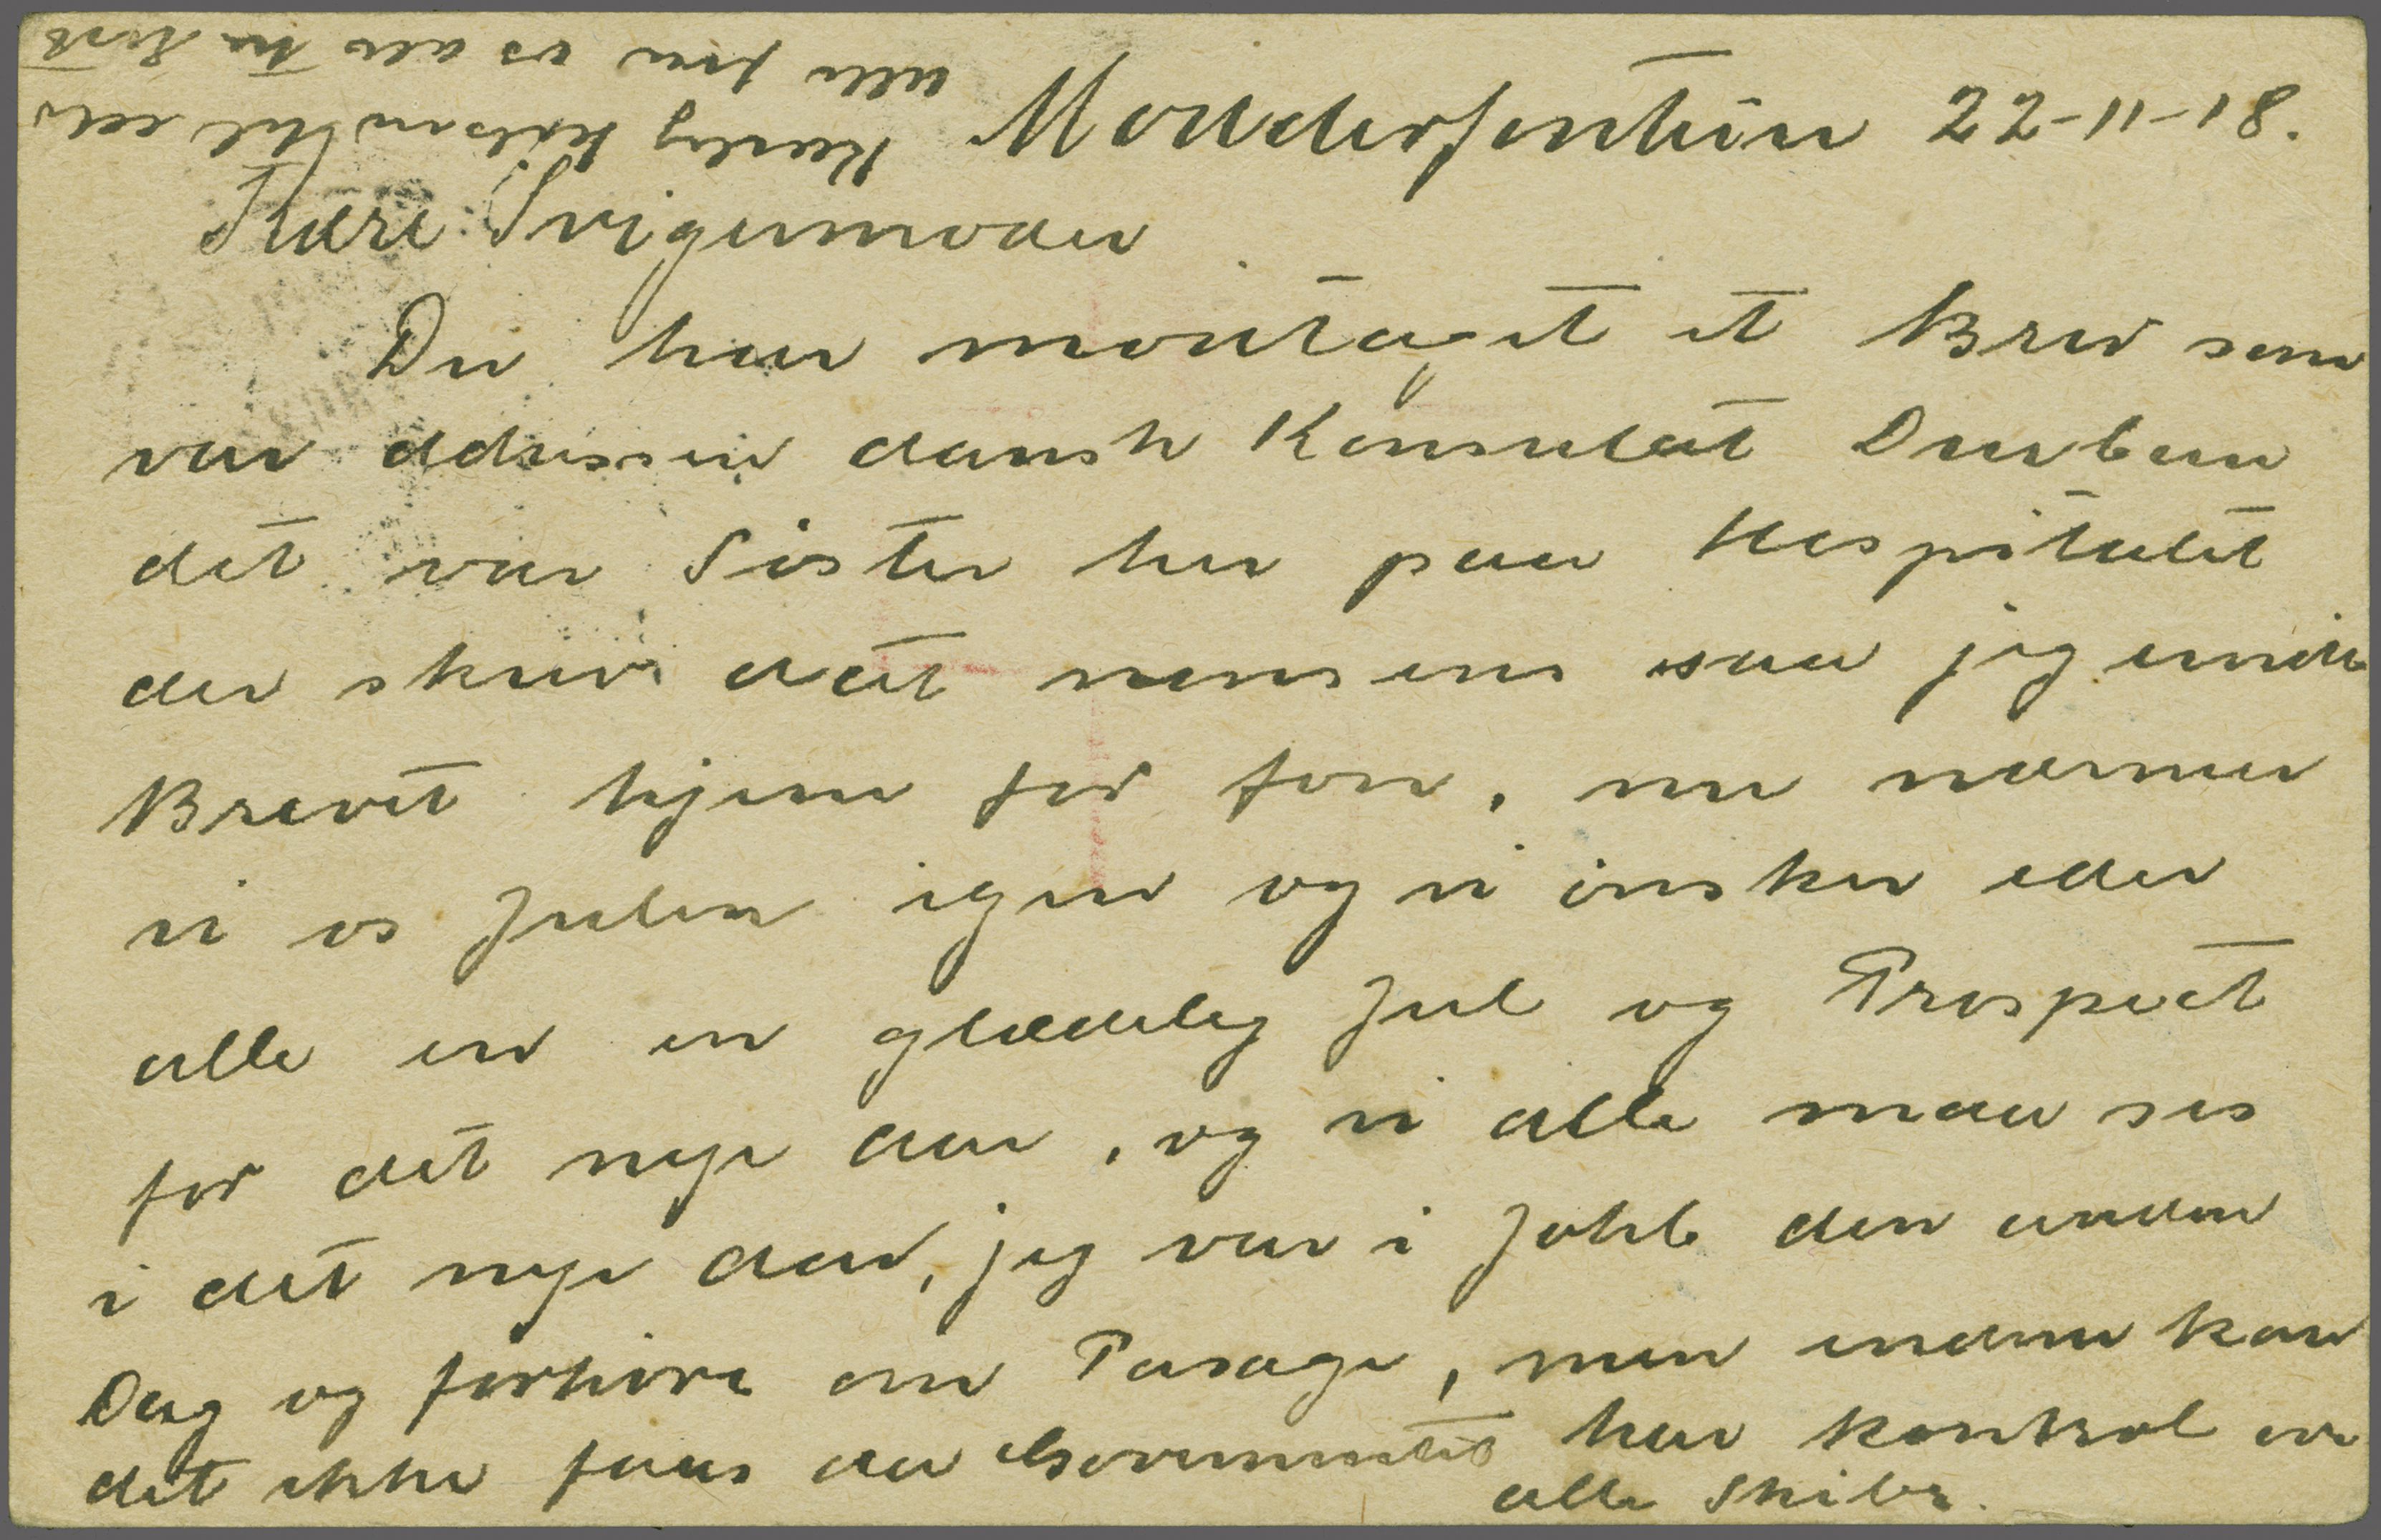 Modderfontein 22-11-18.
Kære Svigermoder
Du har modtaget et Brev som
var addresser dansk Konsulat Durban
det var Sister her paa Hospitalet
der skrev det saa jeg
Brevet hjem for fore, nu nærmer
vi os Julen igen og vi ønsker eder
alle en en glædelig Jul og Prospect
for det nye Aar, og vi alle maa ses
i det nye Aar, jeg var i Johb den anden
Dag og forhøre om Pasage, men endnu kan
det ikke faas da Governmentet har kontrol over
alle Skibe.
Kærlig hilsen til eder
alle fra os alle tre